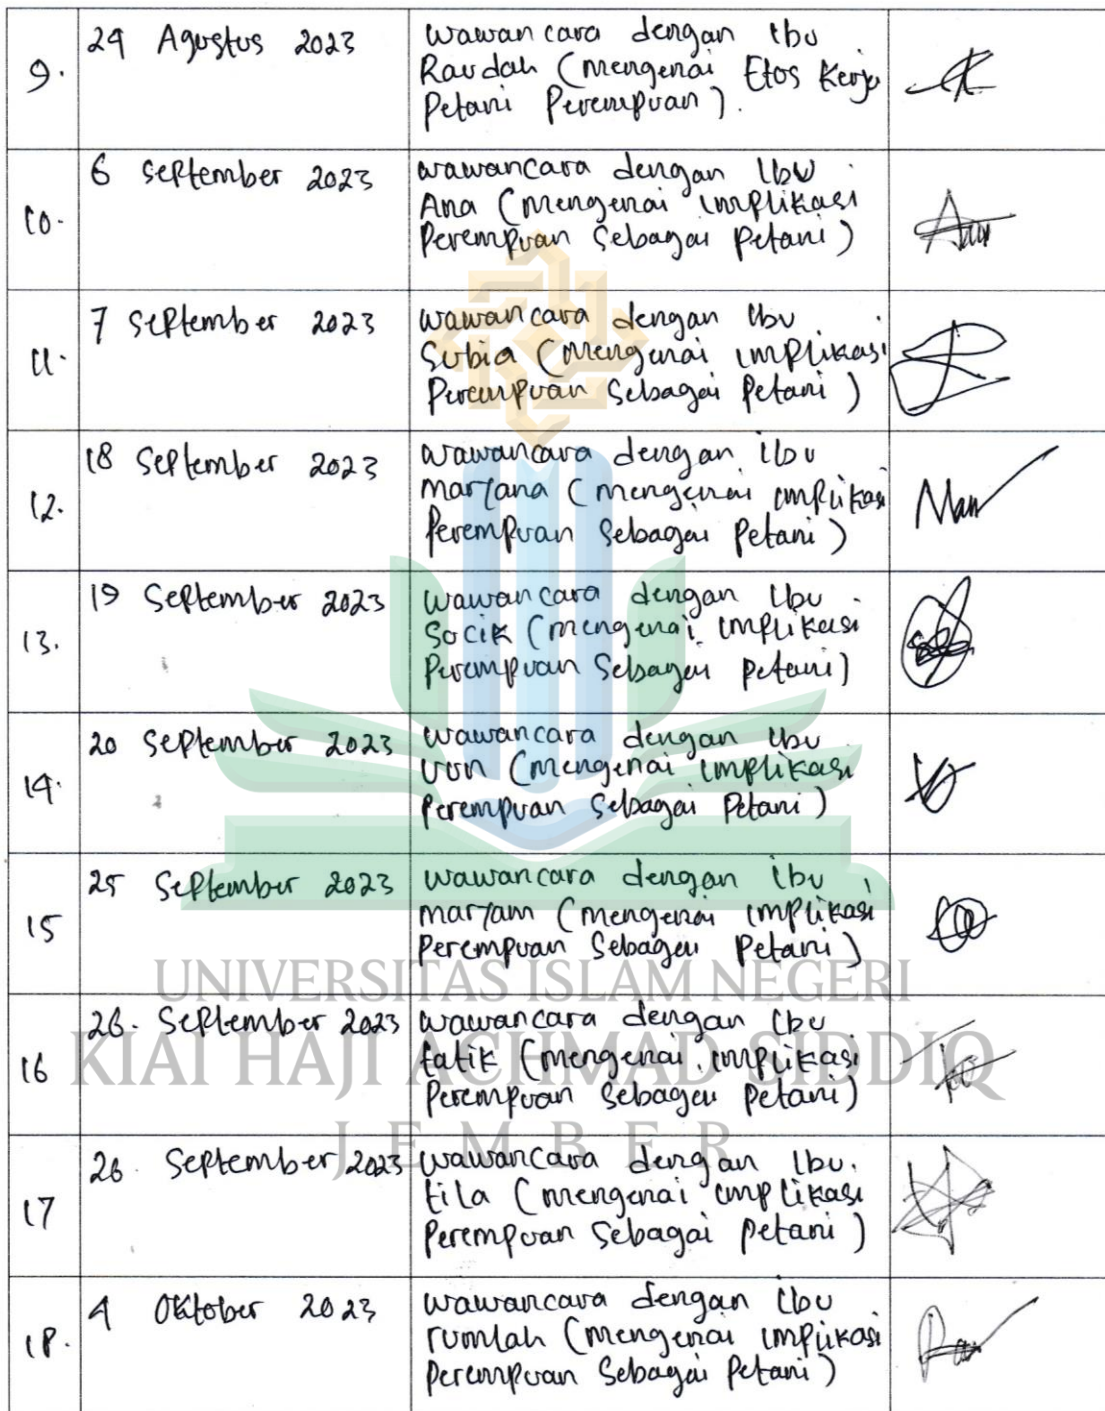 9.
24 Agustus 2023
wawancara dengan Ibu
Raudah (mengenai Etos Kerja
Petani Perempuan).
10.
6 September 2023
wawancara dengan Ibu
Ana (mengenai implikasi
Perempuan Sebagai Petani)
11.
7 September 2023
wawancara dengan Ibu
Subia (mengenai implikasi
Perempuan Sebagai Petani)
12.
18 September 2023
wawancara dengan Ibu
maryana (mengenai implikasi
Perempuan Sebagai Petani)
13.
19 September 2023
wawancara dengan Ibu
Socik (mengenai implikasi
Perempuan Sebagai Petani)
14.
20 September 2023
wawancara dengan Ibu
uun (mengenai implikasi
Perempuan Sebagai Petani)
15
25 September 2023
wawancara dengan Ibu
maryam (mengenai implikasi
Perempuan Sebagai Petani)
UNIVERSITAS ISLAM NEGERI
16
26. September 2023
wawancara dengan Ibu
fatik (mengenai implikasi
Perempuan Sebagai Petani)
KIAI HAJI ACHMAD SIDDIQ
JEMBER
17
26. September 2023
wawancara dengan Ibu.
tila (mengenai implikasi
Perempuan Sebagai Petani)
18.
4 Oktober 2023
wawancara dengan Ibu
rumlah (mengenai implikasi
Perempuan Sebagai Petani)